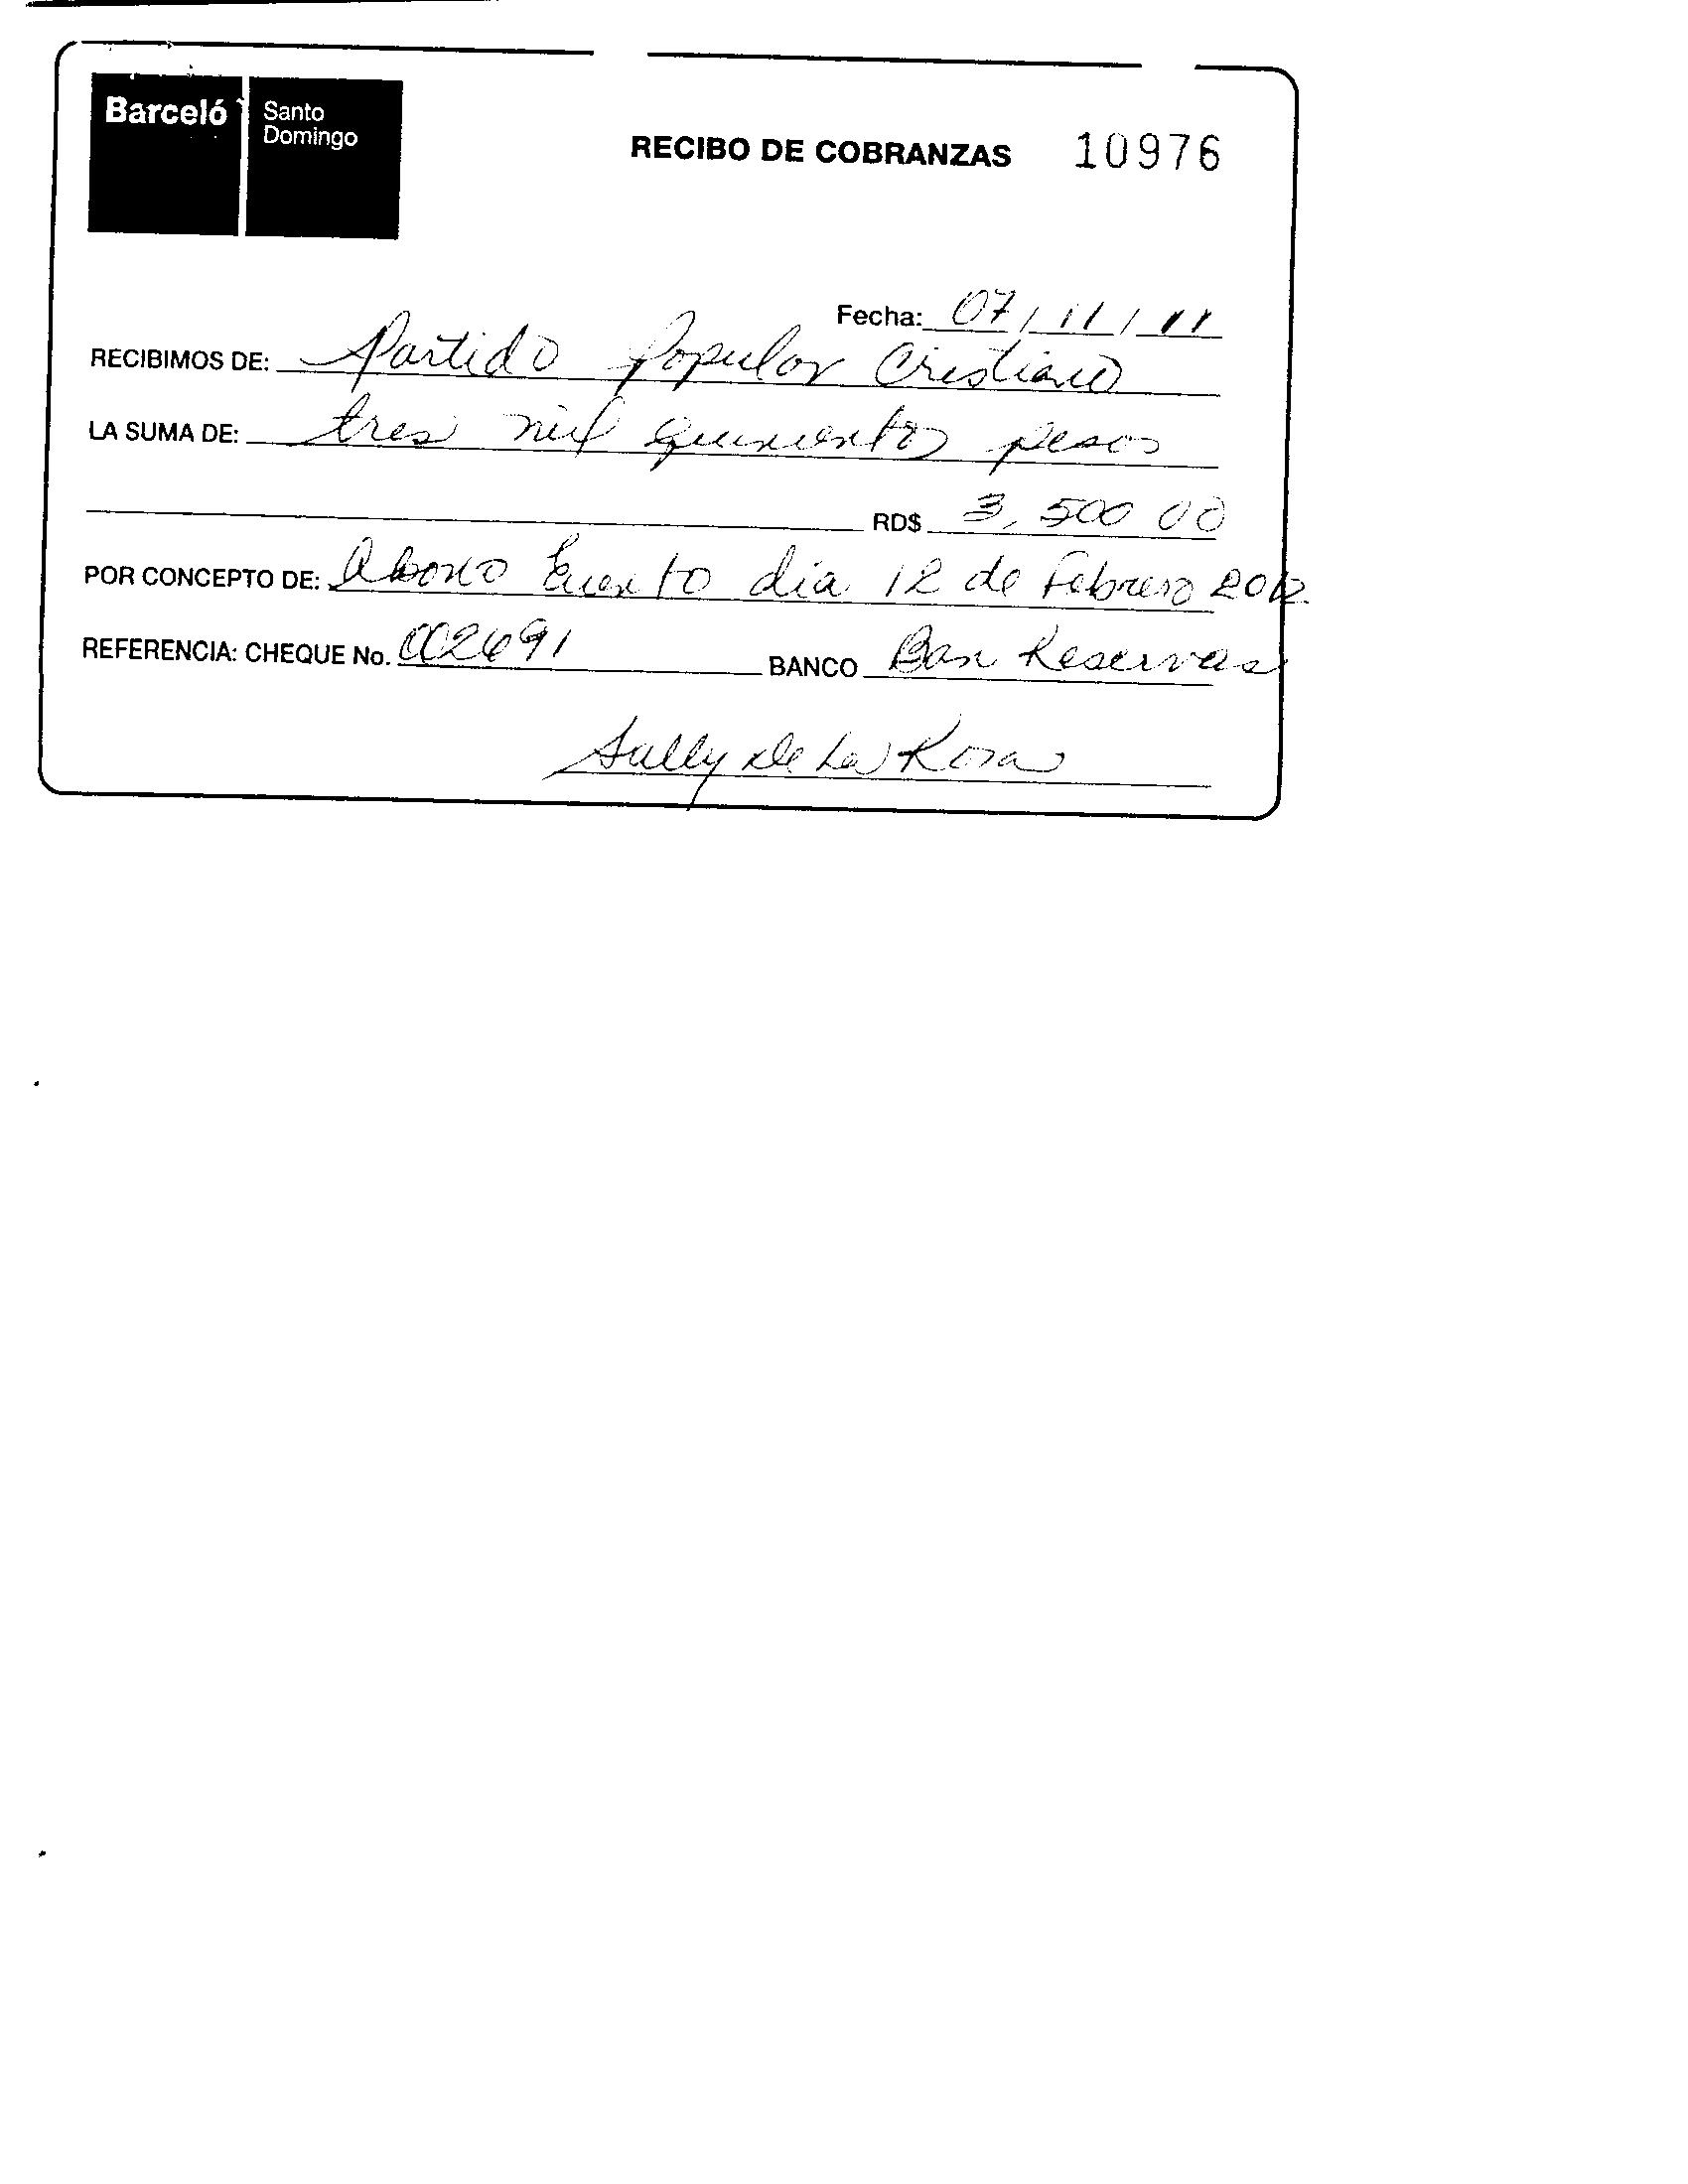 Barceló Santo
Domingo
RECIBO DE COBRANZAS 10976
Fecha: 07/11/11
RECIBIMOS DE: Partido Popular Cristiano
LA SUMA DE: tres mil quinientos pesos
RD$ 3,500 00
POR CONCEPTO DE: Abono Evento dia 12 de Febrero 2012.
REFERENCIA: CHEQUE No. 002691 BANCO Ban Reservas
Sally De La Rosa